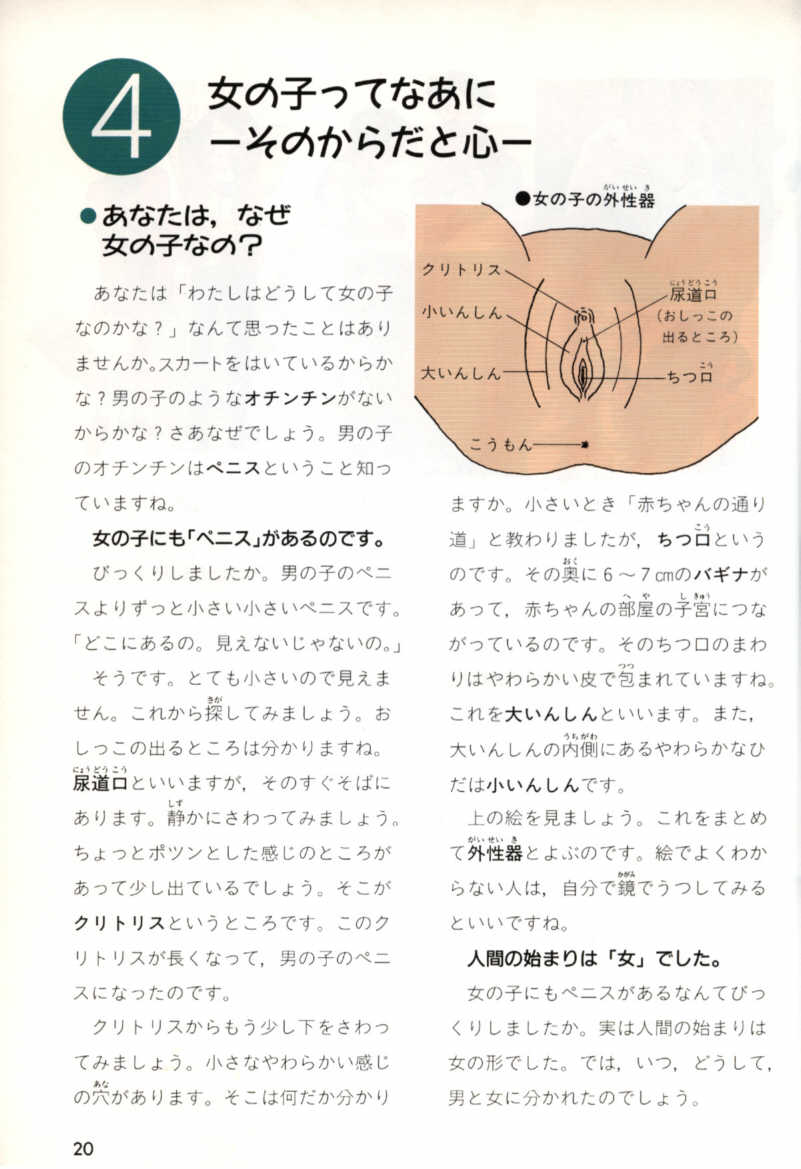 4
女の子ってなあに
ーそのからだと心ー
●あなたは，なぜ
女の子なの？
あなたは「わたしはどうして女の子
なのかな？」なんて思ったことはあり
ませんか。スカートをはいているからか
な？男の子のようなオチンチンがない
からかな？さあなぜでしょう。男の子
のオチンチンはペニスということ知っ
ていますね。
女の子にも「ペニス」があるのです。
びっくりしましたか。男の子のペニ
スよりずっと小さい小さいペニスです。
「どこにあるの。見えないじゃないの。」
そうです。とても小さいので見えま
さが
せん。これから探してみましょう。お
しっこの出るところは分かりますね。
にょうどうこう
尿道口といいますが，そのすぐそばに
しず
あります。静かにさわってみましょう。
ちょっとポツンとした感じのところが
あって少し出ているでしょう。そこが
クリトリスというところです。このク
リトリスが長くなって，男の子のペニ
スになったのです。
クリトリスからもう少し下をさわっ
てみましょう。小さなやわらかい感じ
あな
の穴があります。そこは何だか分かり
がいせいき
●女の子の外性器
クリトリス
小いんしん
大いんしん
こうもん
にょうどうこう
尿道口
(おしっこの
出るところ)
こう
ちつ口
ますか。小さいとき「赤ちゃんの通り
こう
道」と教わりましたが，ちつ口という
おく
のです。その奥に6～7㎝のバギナが
へや しきゅう
あって，赤ちゃんの部屋の子宮につな
がっているのです。そのちつ口のまわ
つつ
りはやわらかい皮で包まれていますね。
これを大いんしんといいます。また，
うちがわ
大いんしんの内側にあるやわらかなひ
だは小いんしんです。
上の絵を見ましょう。これをまとめ
がいせいき
て外性器とよぶのです。絵でよくわか
かがみ
らない人は，自分で鏡でうつしてみる
といいですね。
人間の始まりは「女」でした。
女の子にもペニスがあるなんてびっ
くりしましたか。実は人間の始まりは
女の形でした。では，いつ，どうして，
男と女に分かれたのでしょう。
20